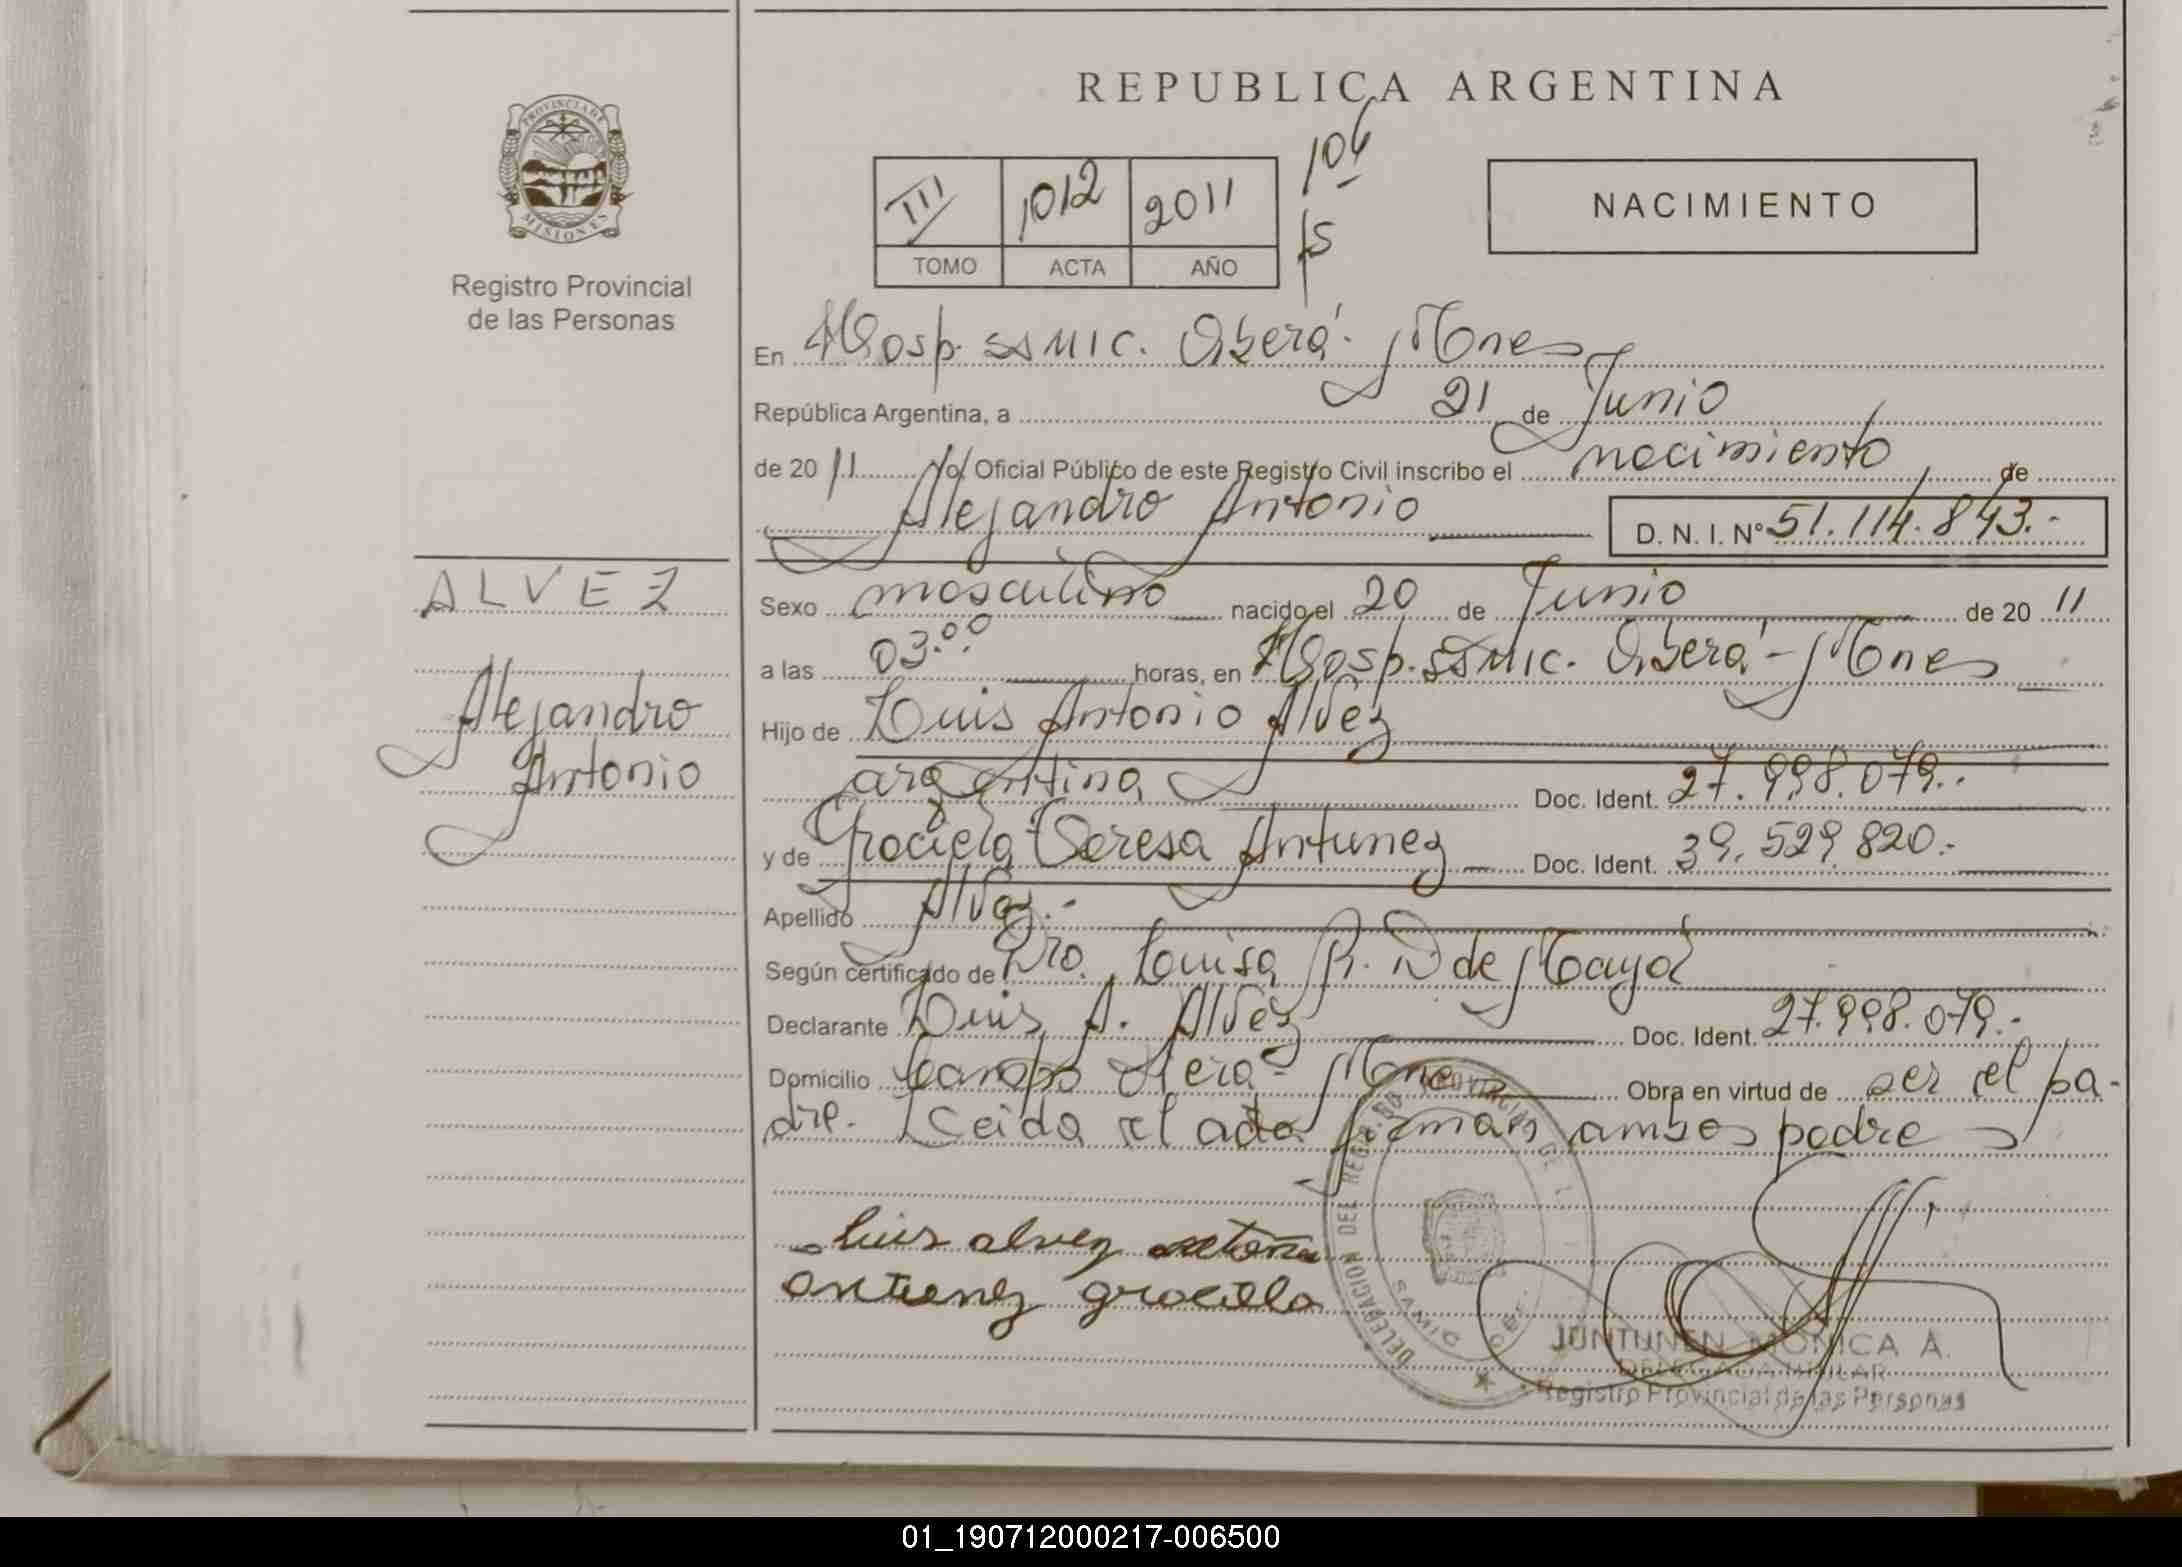 REPUBLICA ARGENTINA
PROVINCIA DE MISIONES
Registro Provincial
de las Personas
III 1012 2011
TOMO ACTA AÑO
104
fs
NACIMIENTO
En Hosp. SAMIC. Oberá - Mnes
República Argentina, a 21 de Junio
de 20 11 Yo, Oficial Público de este Registro Civil inscribo el nacimiento de
Alejandro Antonio D. N. I. N° 51.114.843.-
ALVEZ
Alejandro
Antonio
Sexo masculino nacido el 20 de Junio de 20 11
a las 03.00 horas, en Hosp. SAMIC. Oberá - Mnes
Hijo de Luis Antonio Alvez
argentina Doc. Ident. 27.998.079.-
y de Graciela Teresa Antunez Doc. Ident. 39.529.820.-
Apellido Alvez.-
Según certificado de Dra. Luisa R. D de Mayol
Declarante Luis A. Alvez Doc. Ident. 27.998.079.-
Domicilio Campo Viera - Mnes Obra en virtud de ser el pa-
dre. Leida el acta firman ambos padres
luis alvez
antunez graciela
DELEGACION DEL REGISTRO PROVINCIAL DE L
SAMIC
JUNTUNEN MONICA A.
Registro Provincial de las Personas
01_190712000217-006500